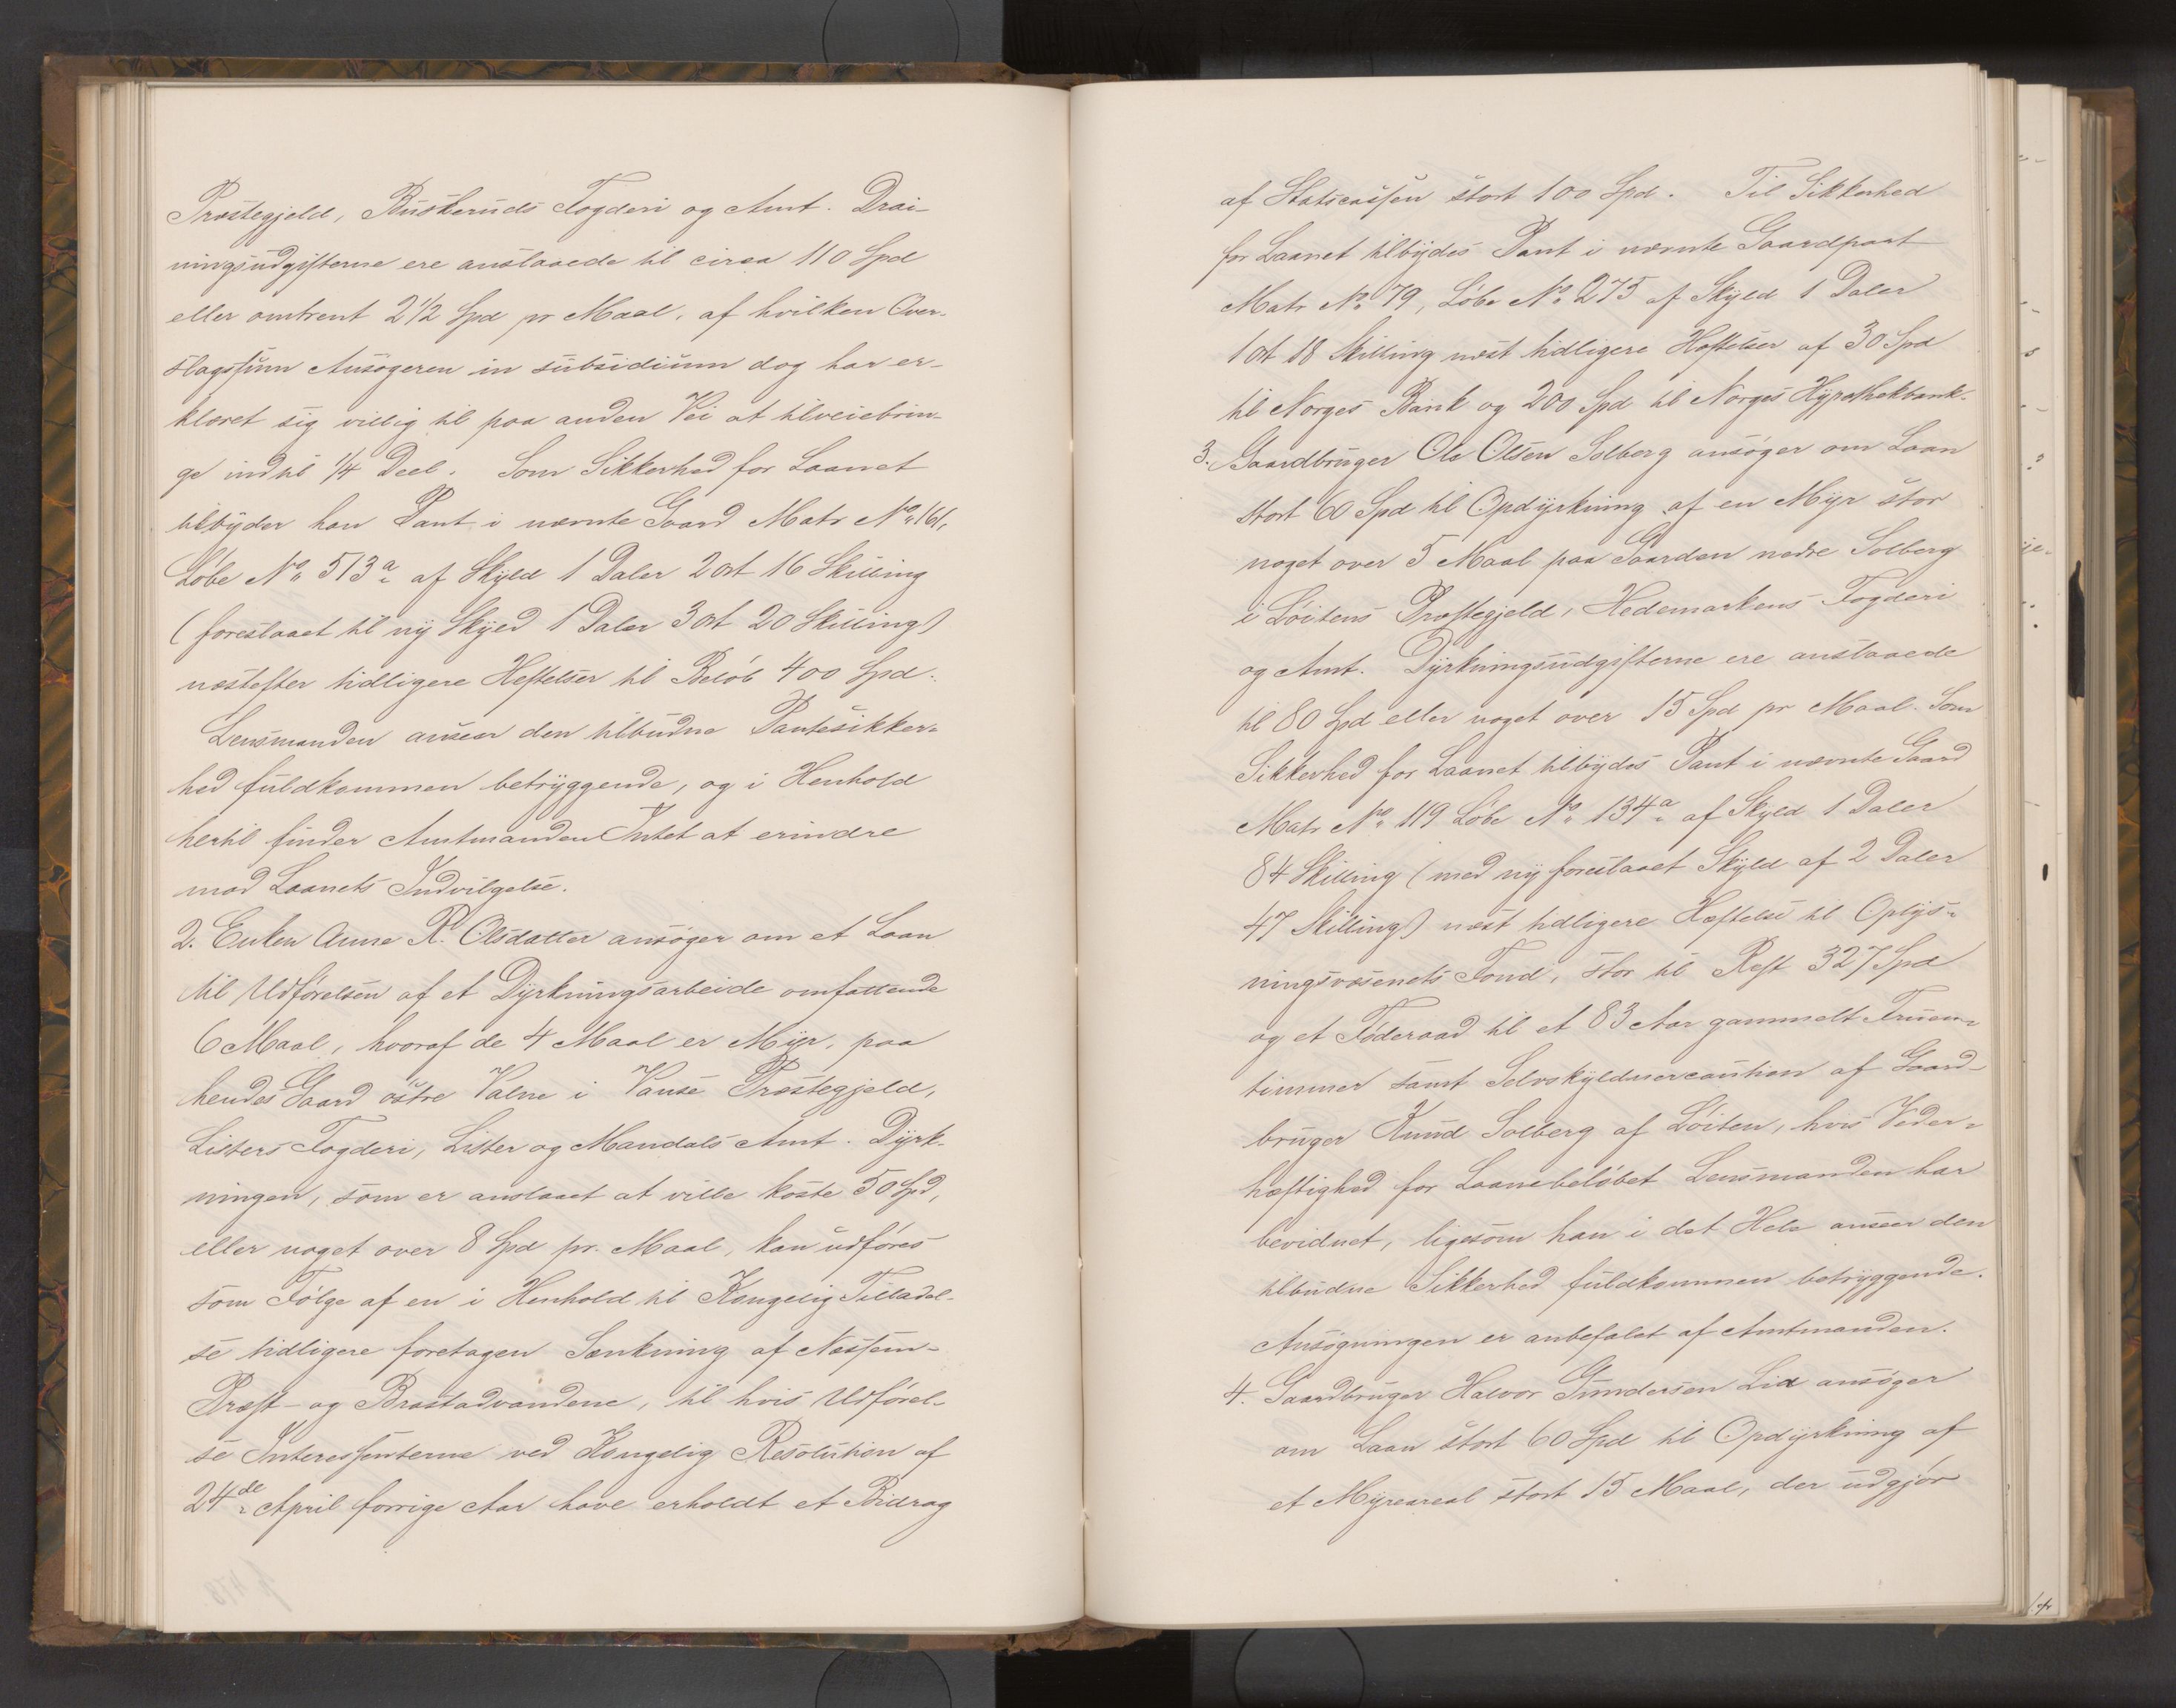 Præstegjeld, Buskeruds Fogderi og Amt. Drai-
ningsudgifterne ere anslaaede til circa 110 Spd
eller omtrent 2 1/2 Spd pr Maal, af hvilken Over-
slagssum Ansøgeren in subsidium dog har er-
klæret sig villig til paa anden Vei at tilveiebrin-
ge indtil 1/4 Deel. Som Sikkerhed for Laanet
tilbyder han Pant i nævnte Gaard Matr No 161,
Løbe No 513a af Skyld 1 Daler 2 ort 16 Skilling
(foreslaaet til ny Skyld 1 Daler 3 ort 20 Skilling)
næstefter tidligere Heftelser til Beløb 400 Spd.
Lensmanden anseer den tilbudne Pantesikker-
hed fuldkommen betryggende, og i Henhold
hertil finder Amtmanden Intet at erindre
mod Laanets Indvilgelse.
2. Enken Anne R. Olsdatter ansøger om et Laan
til Udførelsen af et Dyrkningsarbeide omfattende
6 Maal, hvoraf de 4 Maal er Myr, paa
hendes Gaard østre Valne i Vanse Præstegjeld,
Listers Fogderi, Lister og Mandals Amt. Dyrk-
ningen, som er anslaaet at ville koste 50 Spd,
eller noget over 8 Spd pr. Maal, kan udføres
som Følge af en i Henhold til Kongelig Tilladel-
se tidligere foretagen Sænkning af Næssem-
Præst- og Brastadvandene, til hvis Udførel-
se Interessenterne ved Kongelig Resolution af
24de April forrige Aar have erholdt et Bidrag
af Statscassen stort 100 Spd. Til Sikkerhed
for Laanet tilbydes Pant i nævnte Gaardpart
Matr No 79, Løbe No 275 af Skyld 1 Daler
1 ort 18 Skilling næst tidligere Heftelser af 30 Spd
til Norges Bank og 200 Spd til Norges Hypothekbank.
3. Gaardbruger Ole Olsen Solberg ansøger om Laan
stort 60 Spd til Opdyrkning af en Myr stor
noget over 5 Maal paa Gaarden nedre Solberg
i Løitens Præstegjeld, Hedemarkens Fogderi
og Amt. Dyrkningsudgifterne ere anslaaede
til 80 Spd eller noget over 15 Spd pr Maal. Som
Sikkerhed for Laanet tilbydes Pant i nævnte Gaard
Matr No 119 Løbe No 134a af Skyld 1 Daler
84 Skilling (med ny foreslaaet Skyld af 2 Daler
47 Skilling) næst tidligere Hæftelse til Oplys-
ningsvæsenets Fond, stor til Rest 327 Spd
og et Føderaad til et 83 Aar gammelt Fruen-
timmer samt Selvskyldnercaution af Gaard-
bruger Knud Solberg af Løiten, hvis Veder-
hæftighed for Laanebeløbet Lensmanden har
bevidnet, ligesom han i det Hele anseer den
tilbudne Sikkerhed fuldkommen betryggende.
Ansøgningen er anbefalet af Amtmanden.
4. Gaardbruger Halvor Gundersen Lia ansøger
om Laan stort 60 Spd til Opdyrkning af
et Myreareal stort 15 Maal, der udgjør